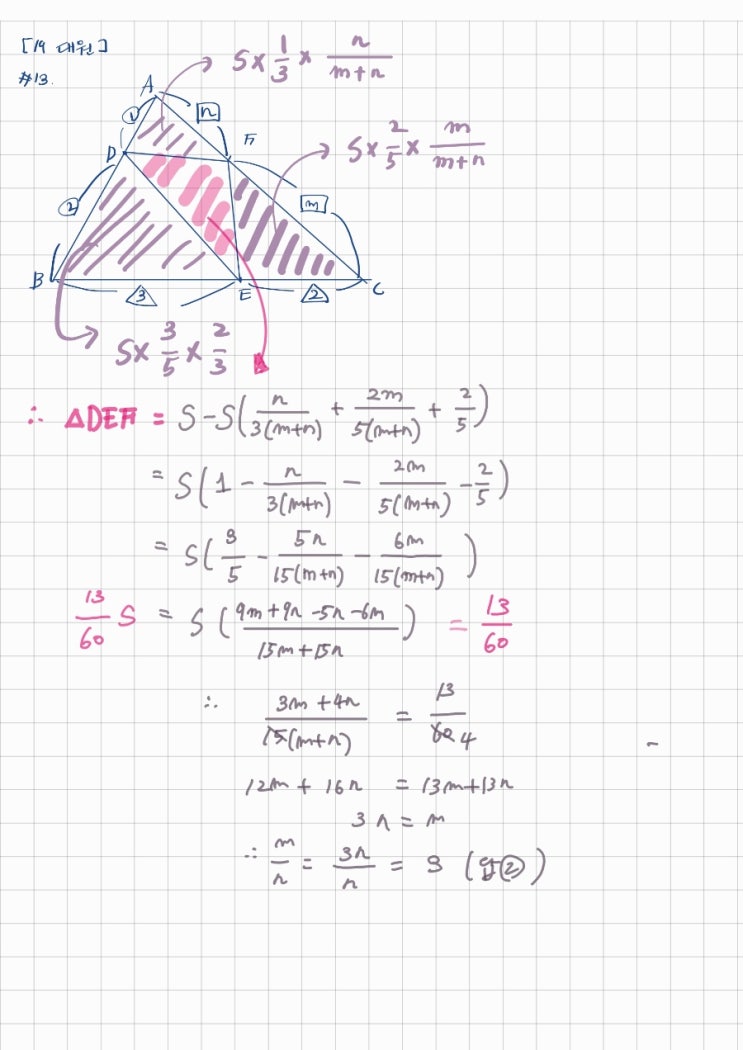 [19 대원]
#13.
S × 1/3 × n/(m+n)
A
① n
F
D
S × 2/5 × m/(m+n)
② m
B E C
3 2
S × 3/5 × 2/3
∴ △DEF = S - S( n/3(m+n) + 2m/5(m+n) + 2/5 )
= S( 1 - n/3(m+n) - 2m/5(m+n) - 2/5 )
= S( 3/5 - 5n/15(m+n) - 6m/15(m+n) )
13/60 S = S( (9m+9n-5n-6m)/(15m+15n) ) = 13/60
∴ (3m+4n)/15(m+n) = 13/60 4
12m + 16n = 13m+13n
3n = m
∴ m/n = 3n/n = 3 (답②)